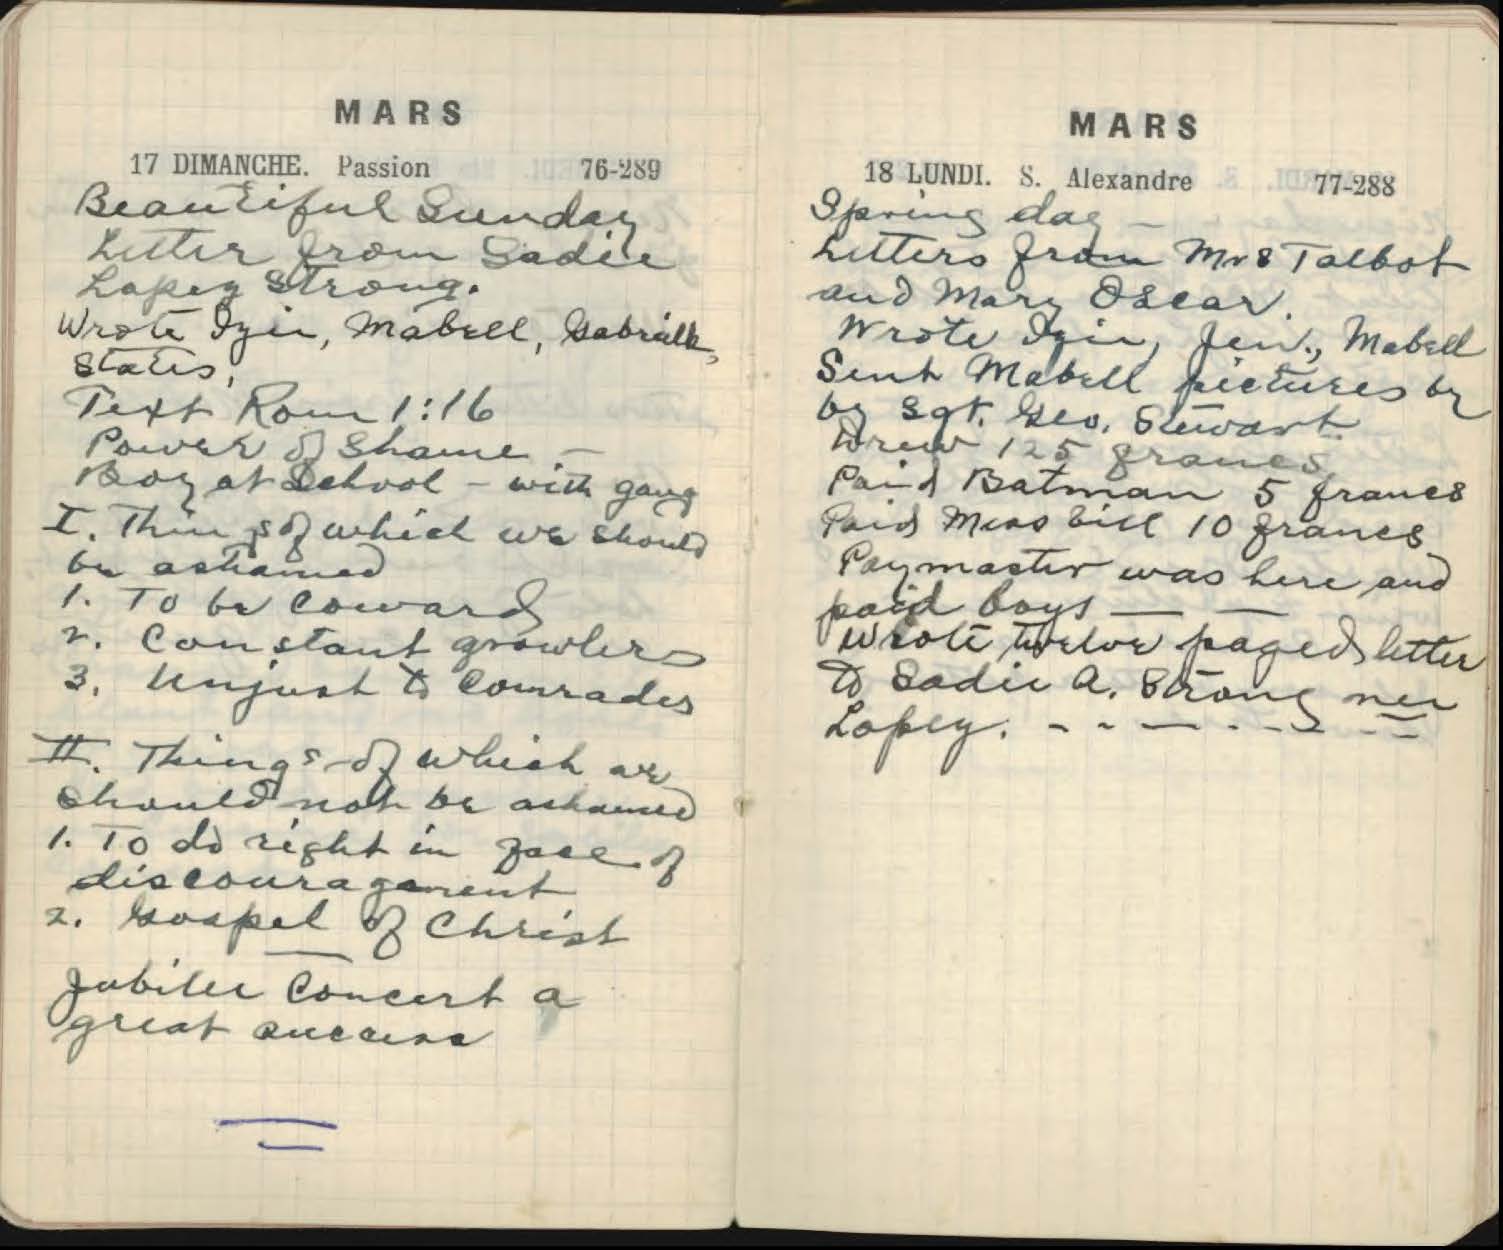 MARS
17 DIMANCHE. Passion 76-289
Beautiful Sunday
Letter from Sadie
Lopey Strong.
Wrote Izie, Mabell, Gabrielle,
States,
Text Rom 1:16
Power of Shame —
Boy at School - with gang
I. Things of which we should
be ashamed
1. To be coward
2. Constant growlers
3. Unjust to Comrades
II. Things of which we
should not be ashamed
1. To do right in face of
discouragement
2. Gospel of Christ
Jubilee Concert a
great success
MARS
18 LUNDI. S. Alexandre 77-288
Spring day —
Letters from Mrs Talbot
and Mary Oscar.
Wrote Izie, Jen., Mabell
Sent Mabell pictures by
by Sgt. Geo. Stewart.
Drew 125 francs
Paid Batman 5 francs
Paid Mess bill 10 francs
Paymaster was here and
paid boys — —
Wrote twelve paged letter
to Sadie A. Strong nee
Lopey. - - — - - - - -